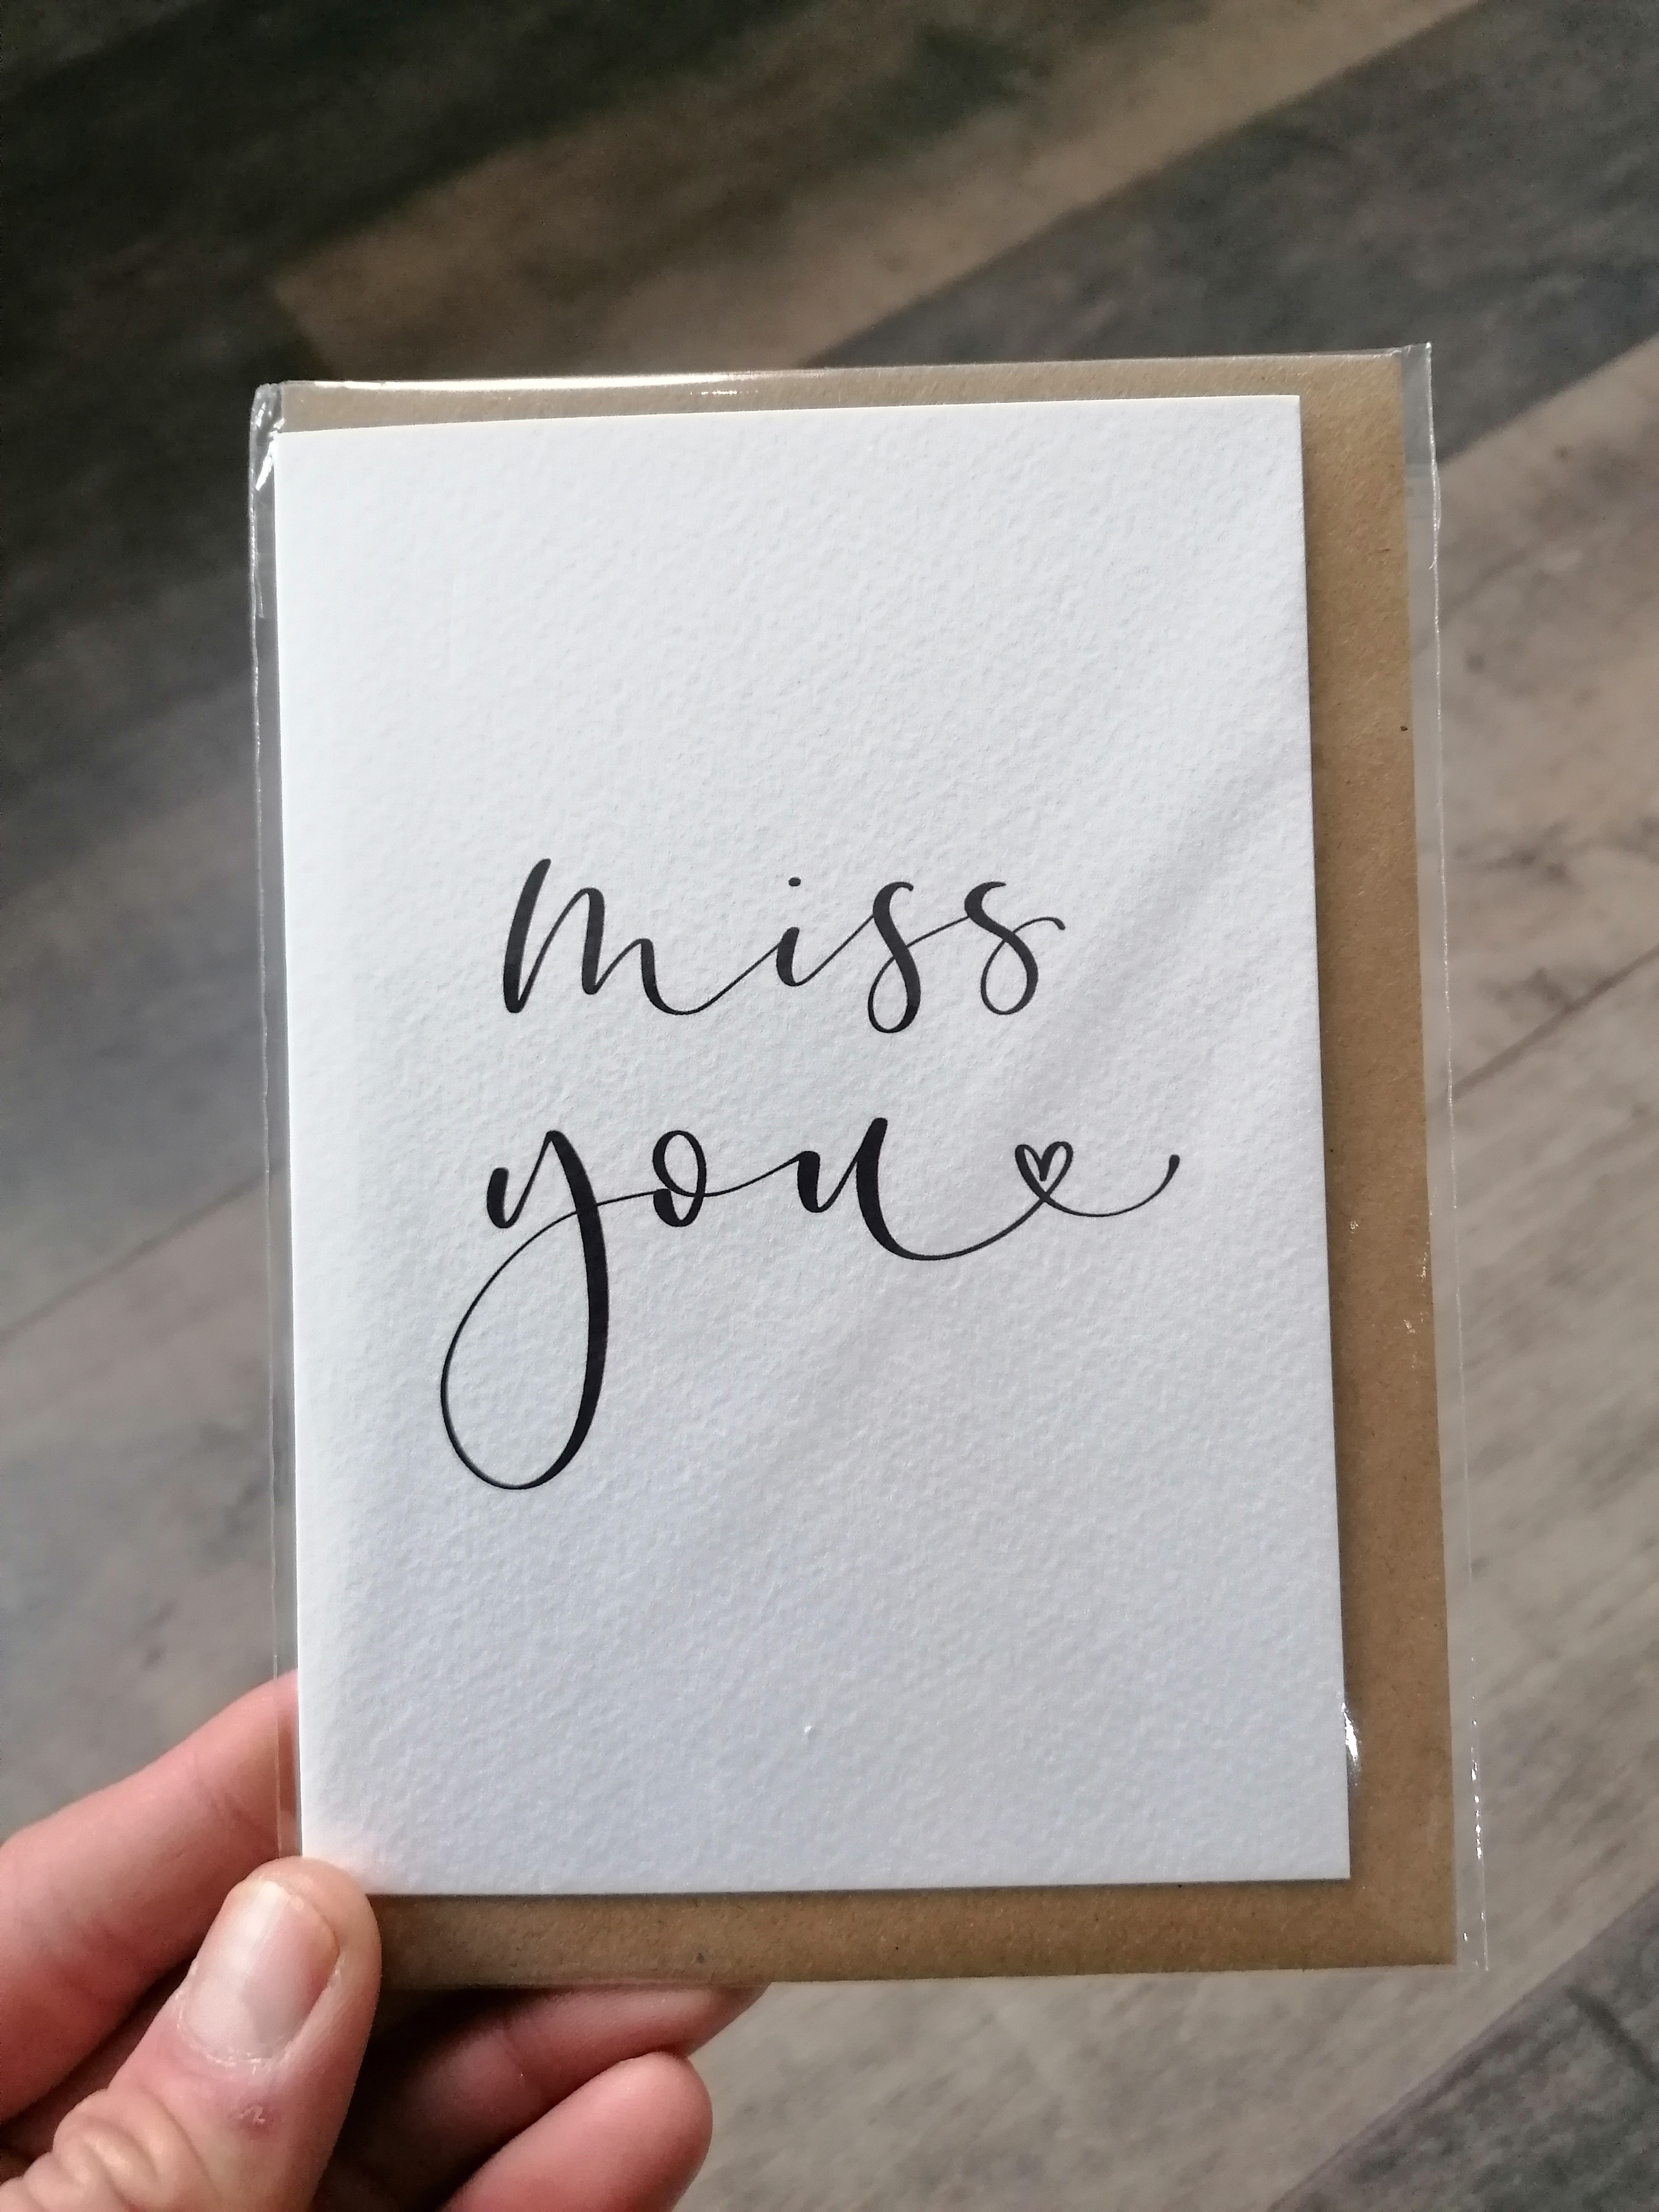 miss
you